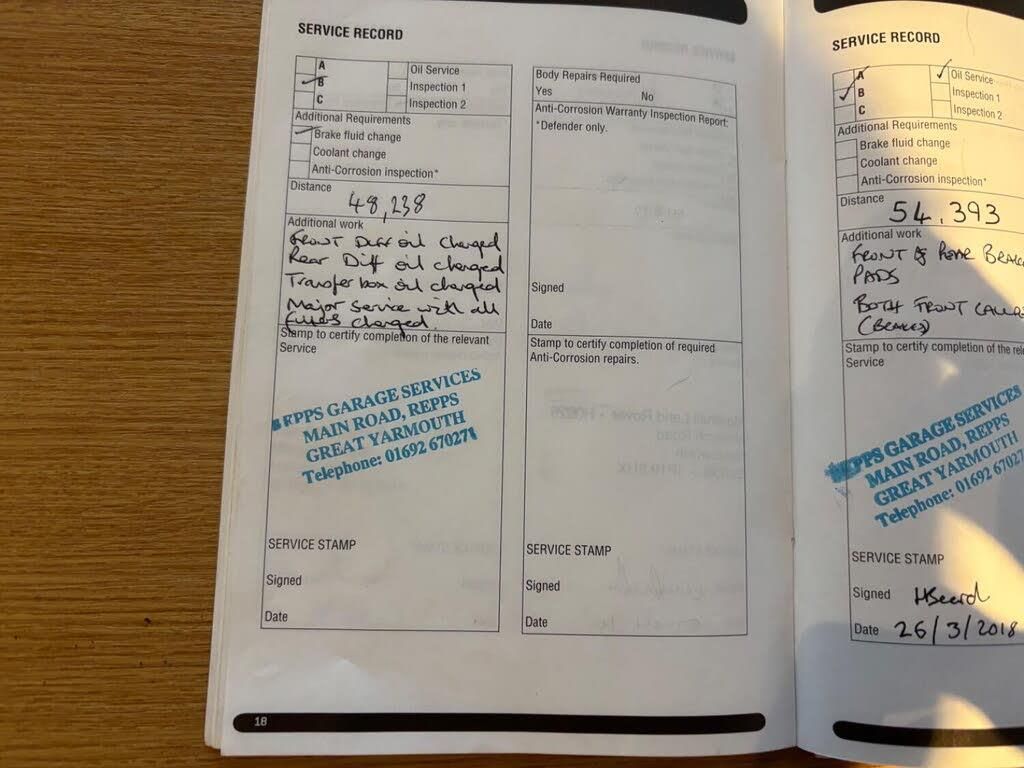 SERVICE RECORD
A
B
C
Oil Service
Inspection 1
Inspection 2
Additional Requirements
Brake fluid change
Coolant change
Anti-Corrosion inspection*
Distance
48,238
Additional work
Front Diff oil changed
Rear Diff oil changed
Transfer box oil changed
Major service with all
filters changed.
Stamp to certify completion of the relevant
Service
REPPS GARAGE SERVICES
MAIN ROAD, REPPS
GREAT YARMOUTH
Telephone: 01692 670271
SERVICE STAMP
Signed
Date
18
Body Repairs Required
Yes No
Anti-Corrosion Warranty Inspection Report:
*Defender only.
Signed
Date
Stamp to certify completion of required
Anti-Corrosion repairs.
SERVICE STAMP
Signed
Date
SERVICE RECORD
A
B
C
Oil Service
Inspection 1
Inspection 2
Additional Requirements
Brake fluid change
Coolant change
Anti-Corrosion inspection*
Distance
54,393
Additional work
FRONT & REAR BRAKE
PADS
BOTH FRONT
(BRAKES)
Stamp to certify completion of the
Service
REPPS GARAGE SERVICES
MAIN ROAD, REPPS
GREAT YARMOUTH
Telephone: 01692 67027
SERVICE STAMP
Signed
Date 26/3/2018